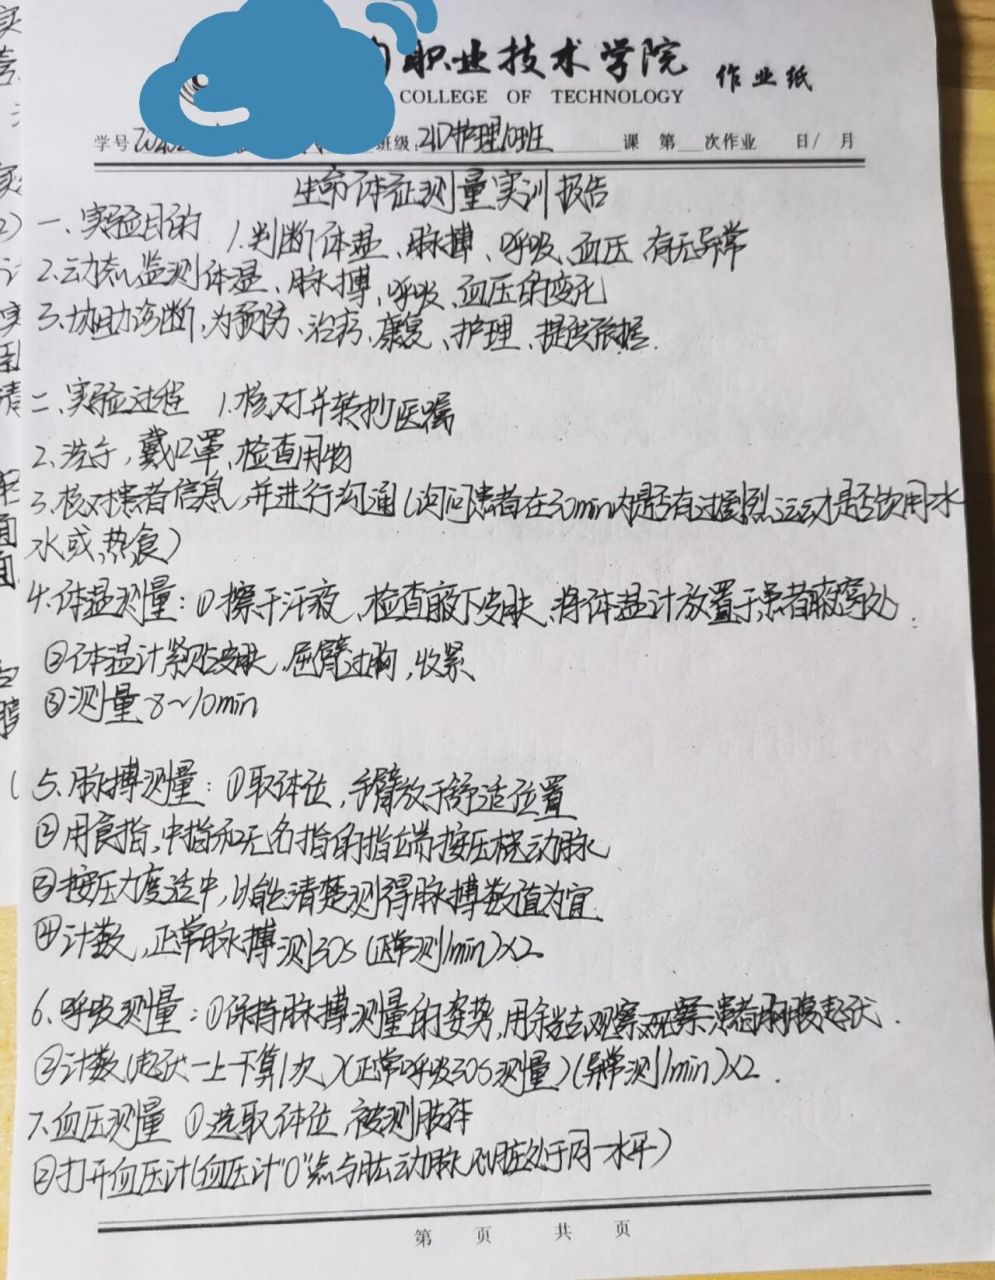 职业技术学院 作业纸
COLLEGE OF TECHNOLOGY
学号 班级:21D护理10班 课 第 次作业 日/ 月
生命体征测量实训报告
一、实验目的 1.判断体温、脉搏、呼吸、血压有无异常
2.动态监测体温、脉搏、呼吸、血压的变化
3.协助诊断,为预防、治疗、康复、护理、提供依据.
二、实验过程 1.核对并转抄医嘱
2.洗手,戴口罩、检查用物
3.核对患者信息,并进行沟通(询问患者在30min内是否有过剧烈运动是否饮用冰
水或热食)
4.体温测量:①擦干汗液、检查腋下皮肤、将体温计放置于患者腋窝处.
②体温计紧贴皮肤、屈臂过胸,收紧
③测量8~10min
5.脉搏测量:①取体位,手臂放于舒适位置
②用食指,中指和无名指的指端按压桡动脉
③按压力度适中,以能清楚测得脉搏数值为宜.
④计数,正常脉搏测30s(正常测1min)×2
6.呼吸测量:①保持脉搏测量的姿势,用余光观察患者胸腹起伏.
②计数(起伏一上下算1次)(正常呼吸30s测量)(异常测1min)×2.
7.血压测量 ①选取体位,被测肢体
②打开血压计(血压计"0"点与肱动脉心脏处于同一水平)
第 页 共 页